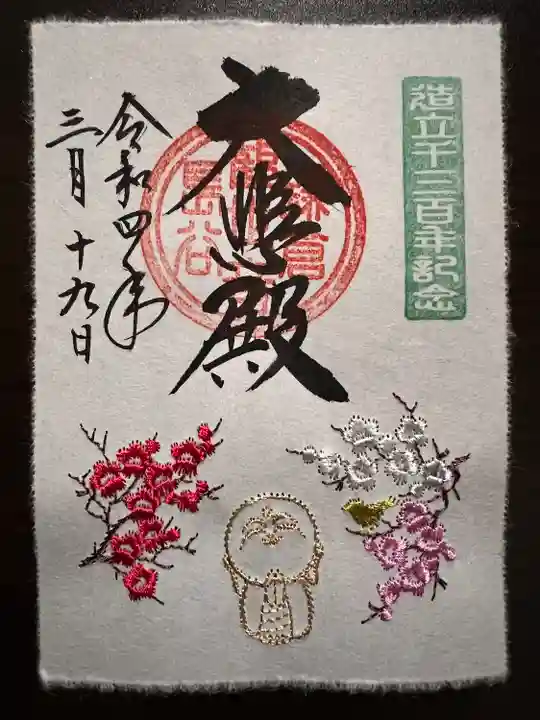 造立千三百年記念
大悲殿
令和四年
三月十九日